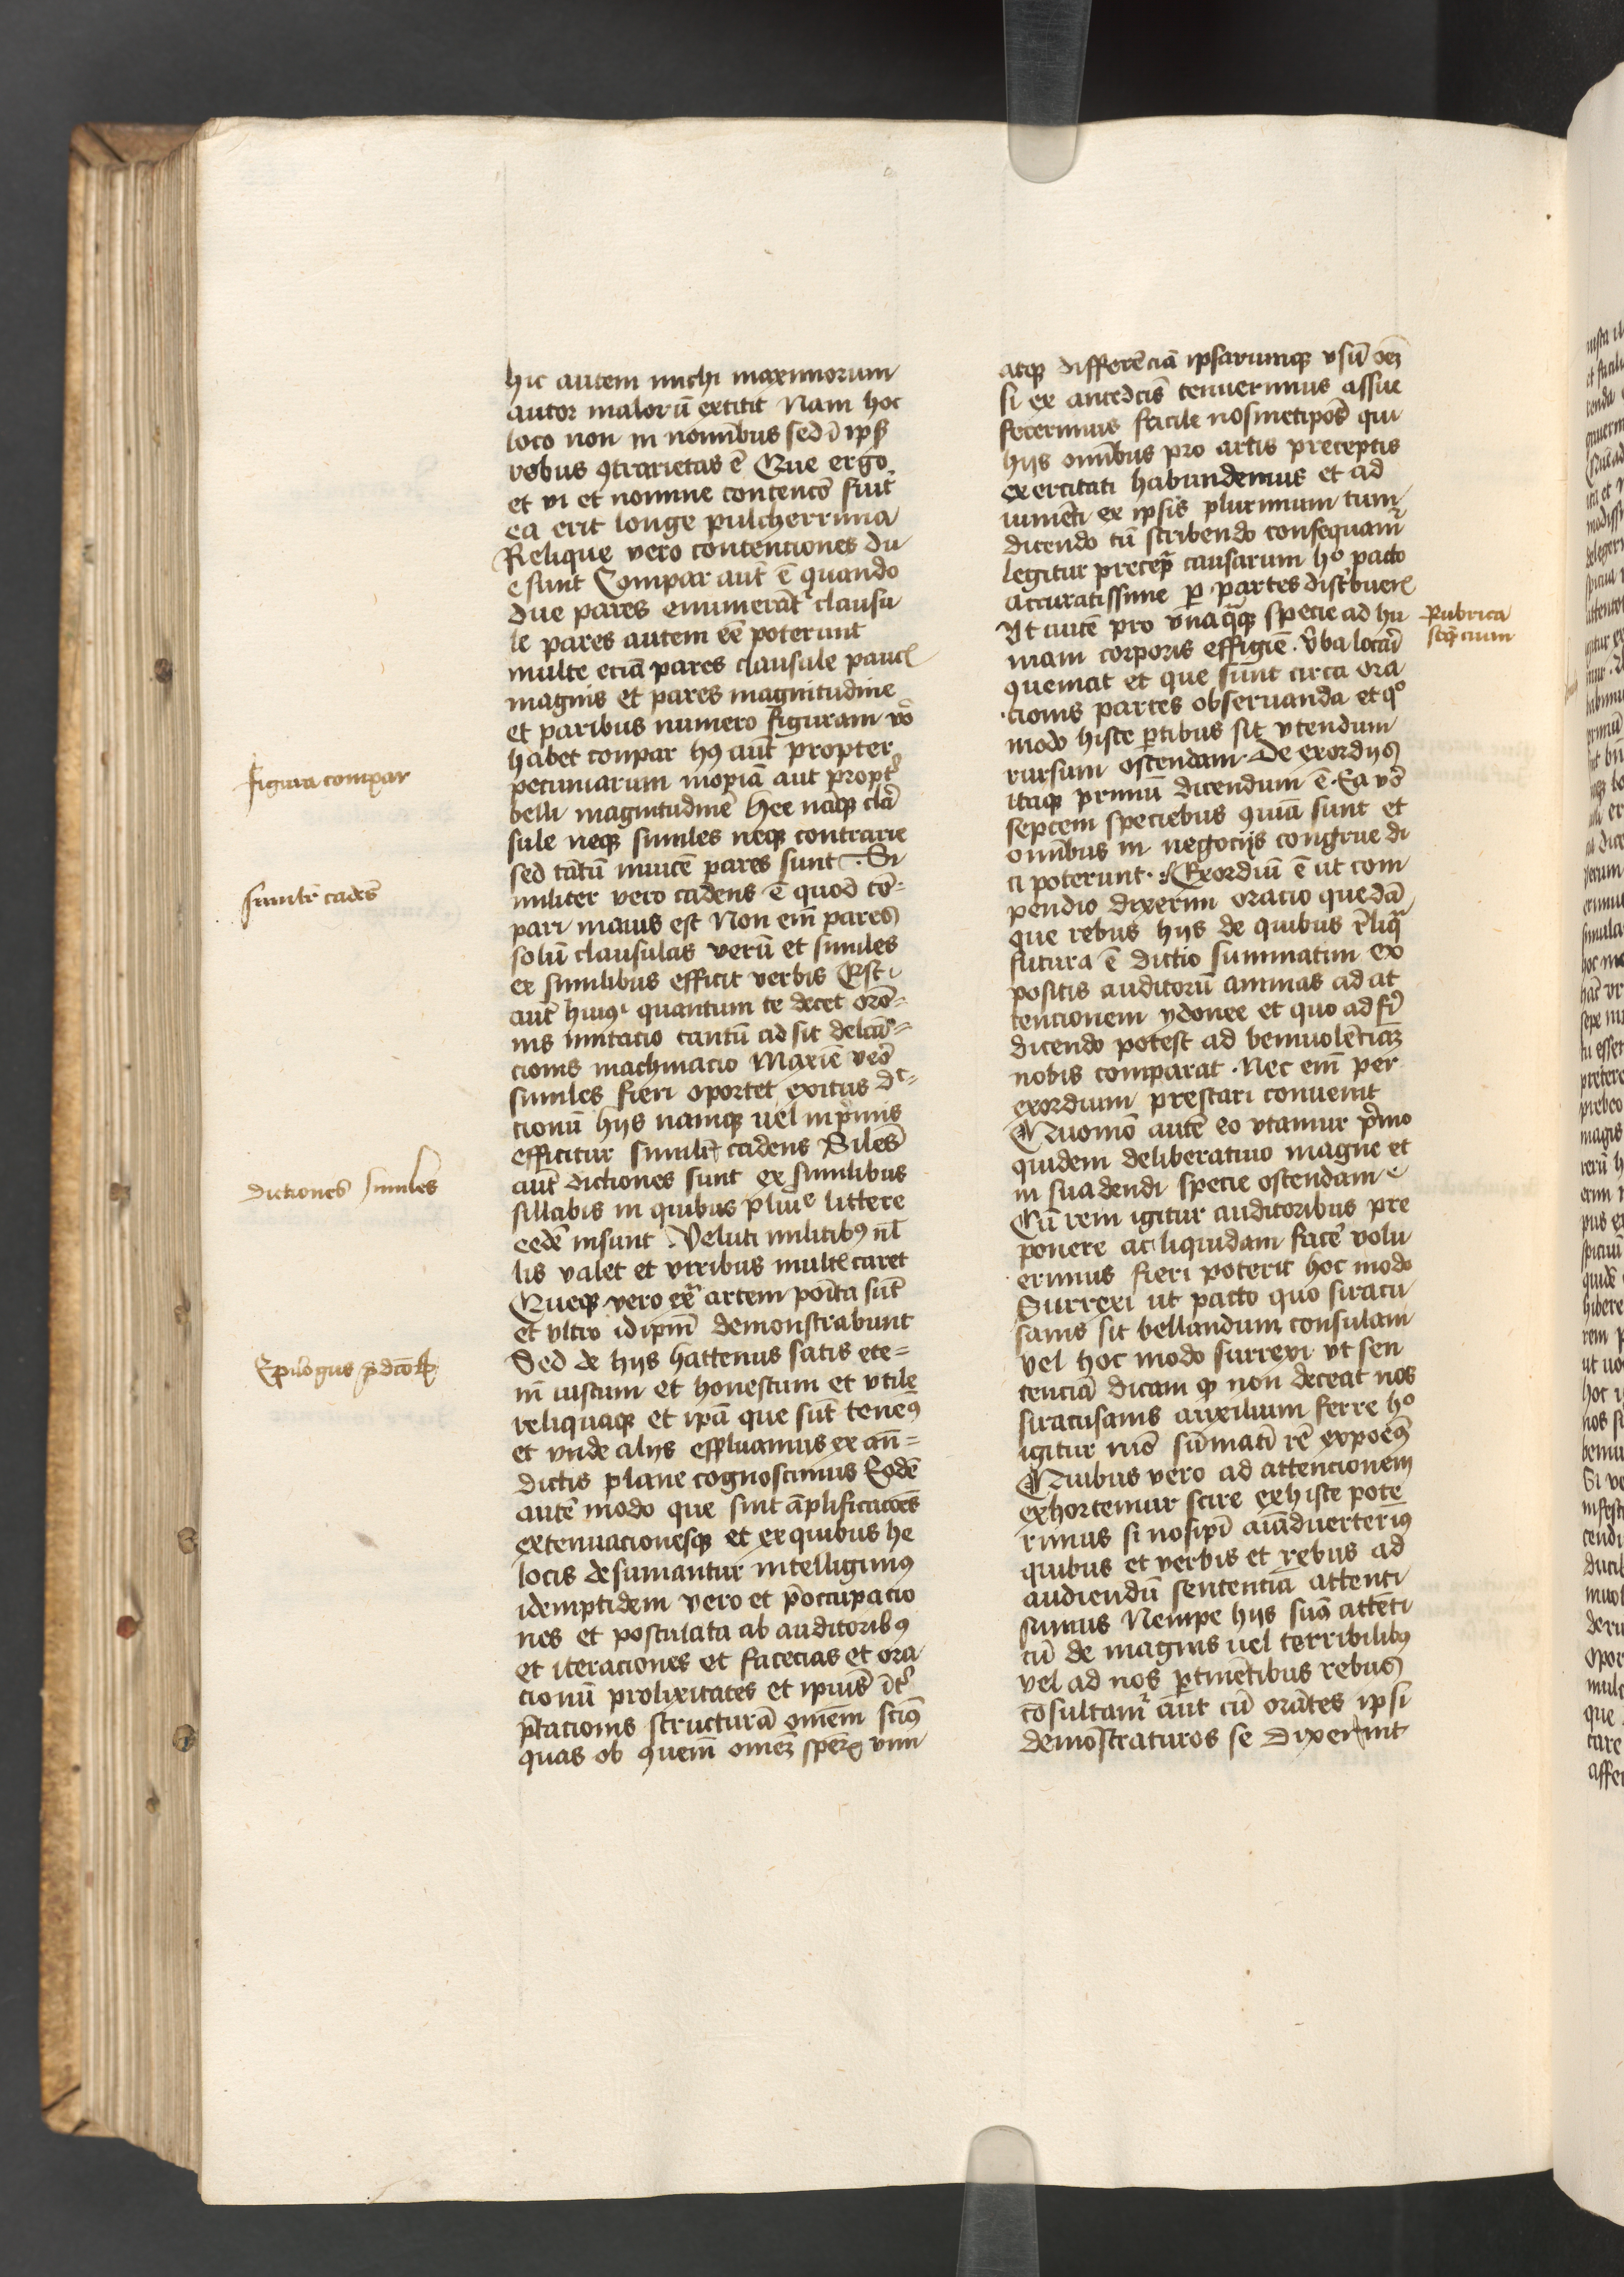 hic autem michi maximorum
autor malorū extitit Nam hoc
loco non in nomībus sed ī ipß
rebus ꝯtrarietas ē Que ergo
et vi et nomine contencō fuit
ea erit longe pulcherrima
Relique vero contentiones du
e sunt Compar aut̄ ē quando
due pares enumerāt᷑ clausu
le pares autem eē poterunt
multe eciā pares clausule paucꝭ
magnis et pares magnitudine
et paribus numero figuram vo᷑
habet conpar hꝰ aut̄ propter
pecuniarum inopiā aut propt᷑
belli magnitudinē Hee nāqꝫ clā
sule neqꝫ similes neqꝫ contrarie
sed tātū inuicē pares sunt Si
militer vero cadens ē quod cō=
pari maius est Non em̄ pares
solū clausulas verū et similes
ex similibus efficit verbis Est
aut̄ huiꝰ quantum te decet orō=
nis imitacio tantū ad sit delcā=
cionis machinacio Maxīe vēo
similes fieri oportet exitus dc̄=
cionū hijs namqꝫ uel inp̄mis
efficitur similit᷑ cadens Silēs
aut̄ dictiones sunt ex similibus
sillabis in quibus plīme littere
eedē insunt Veluti militibꝰ nl̄
lis valet et viribus multꝭ caret
Queqꝫ vero ex᷑ artem posita sūt
et vltro idip̄m demonstrabunt
Sed de hijs hattenus satis ete=
nī iustum et honestum et vtile
reliquaqꝫ et ip̄a que sūt tenēꝰ
et vnde alijs effluamus ex an̄=
dictis plane cognoscimus Eodē
autē modo que sint āplificacōes
extenuacionesqꝫ et ex quibus he
locis desumantur intelligimꝰ
idemptidem vero et p̄occupacio
nes et postulata ab auditoribꝰ
et iteraciones et facecias et ora
cionū prolixitates et ipiuſ īt᷑
p̄tacionis structurā omēm scīꝰ
quas ob quem̄ omēꝫ vim
figura compar
simil᷑r cadēs
dictiones similes
Epilogus p̄dcōꝝ
atqꝫ differēciā ipsarumqꝫ vsū oēꝫ
si ex antedc̄is tenuerimus assue
fecerimus facile nosmetipōs qui
hijs omībus pro artis preceptis
exercitati habundemus et ad
iumēti ex ipsis plurimum tum
dicendo tū scribendo consequam᷑
legitur precep᷑ causarum hͦ pacto
accuratissime ꝑ partes distbuere
Vt autē pro vnaq̄qꝫ specie ad hu
mani corporis effigiē v̄ba locāri
ꝯueniat et que sunt circa ora
cionis partes obseruanda et qͦ
modo hisce ꝑtibus sit vtendum
rursum ostendam De exordijs
itaqꝫ primū dicendum ē Ea vō
septem speciebus ꝯmīa sunt et
omībus in negocijs congrue di
ci poterunt Exordiū ē ut com
pendio dixerim oracio quedā
que rebus hijs de quibus rl̄iq̄
futura ē dictio summatim ex
positis auditorū animas ad at
tencionem ydonee et quo ad fi᷑
dicendo potest ad beniuolēciāꝫ
nobis comparat Nec em̄ per
exordium prestari conuenit
Quomō autē eo vtamur p̄mo
quidem deliberatiuo magne et
in suadendi specie ostendam
Cū rem igitur auditoribus pre
ponere ac liquidam facē volu
erimus fieri poterit hoc modo
Surrexi ut pacto quo siracu
sanis sit bellandum consulam
vel hoc modo surrexi vt sen
tenciā dicam ꝙ non deceat nos
siracusanis auxilium ferre hͦ
igitur mō sūmatī rē expoēꝰ
Quibus vero ad attencionem
exhortemur scire ex hisce pote
rimus si nosip̄i aīaduerterīꝰ
quibus et verbis et rebus ad
audiendū sententiā attenti
sumus Nempe hijs sūꝰ attēti
cū de magnis uel terribilibꝰ
vel ad nos ꝑtinētibus rebus
cōsultam᷑ aut cū orātes ipsi
demōstraturos se dixerint
Rubrica
seq̄ncium